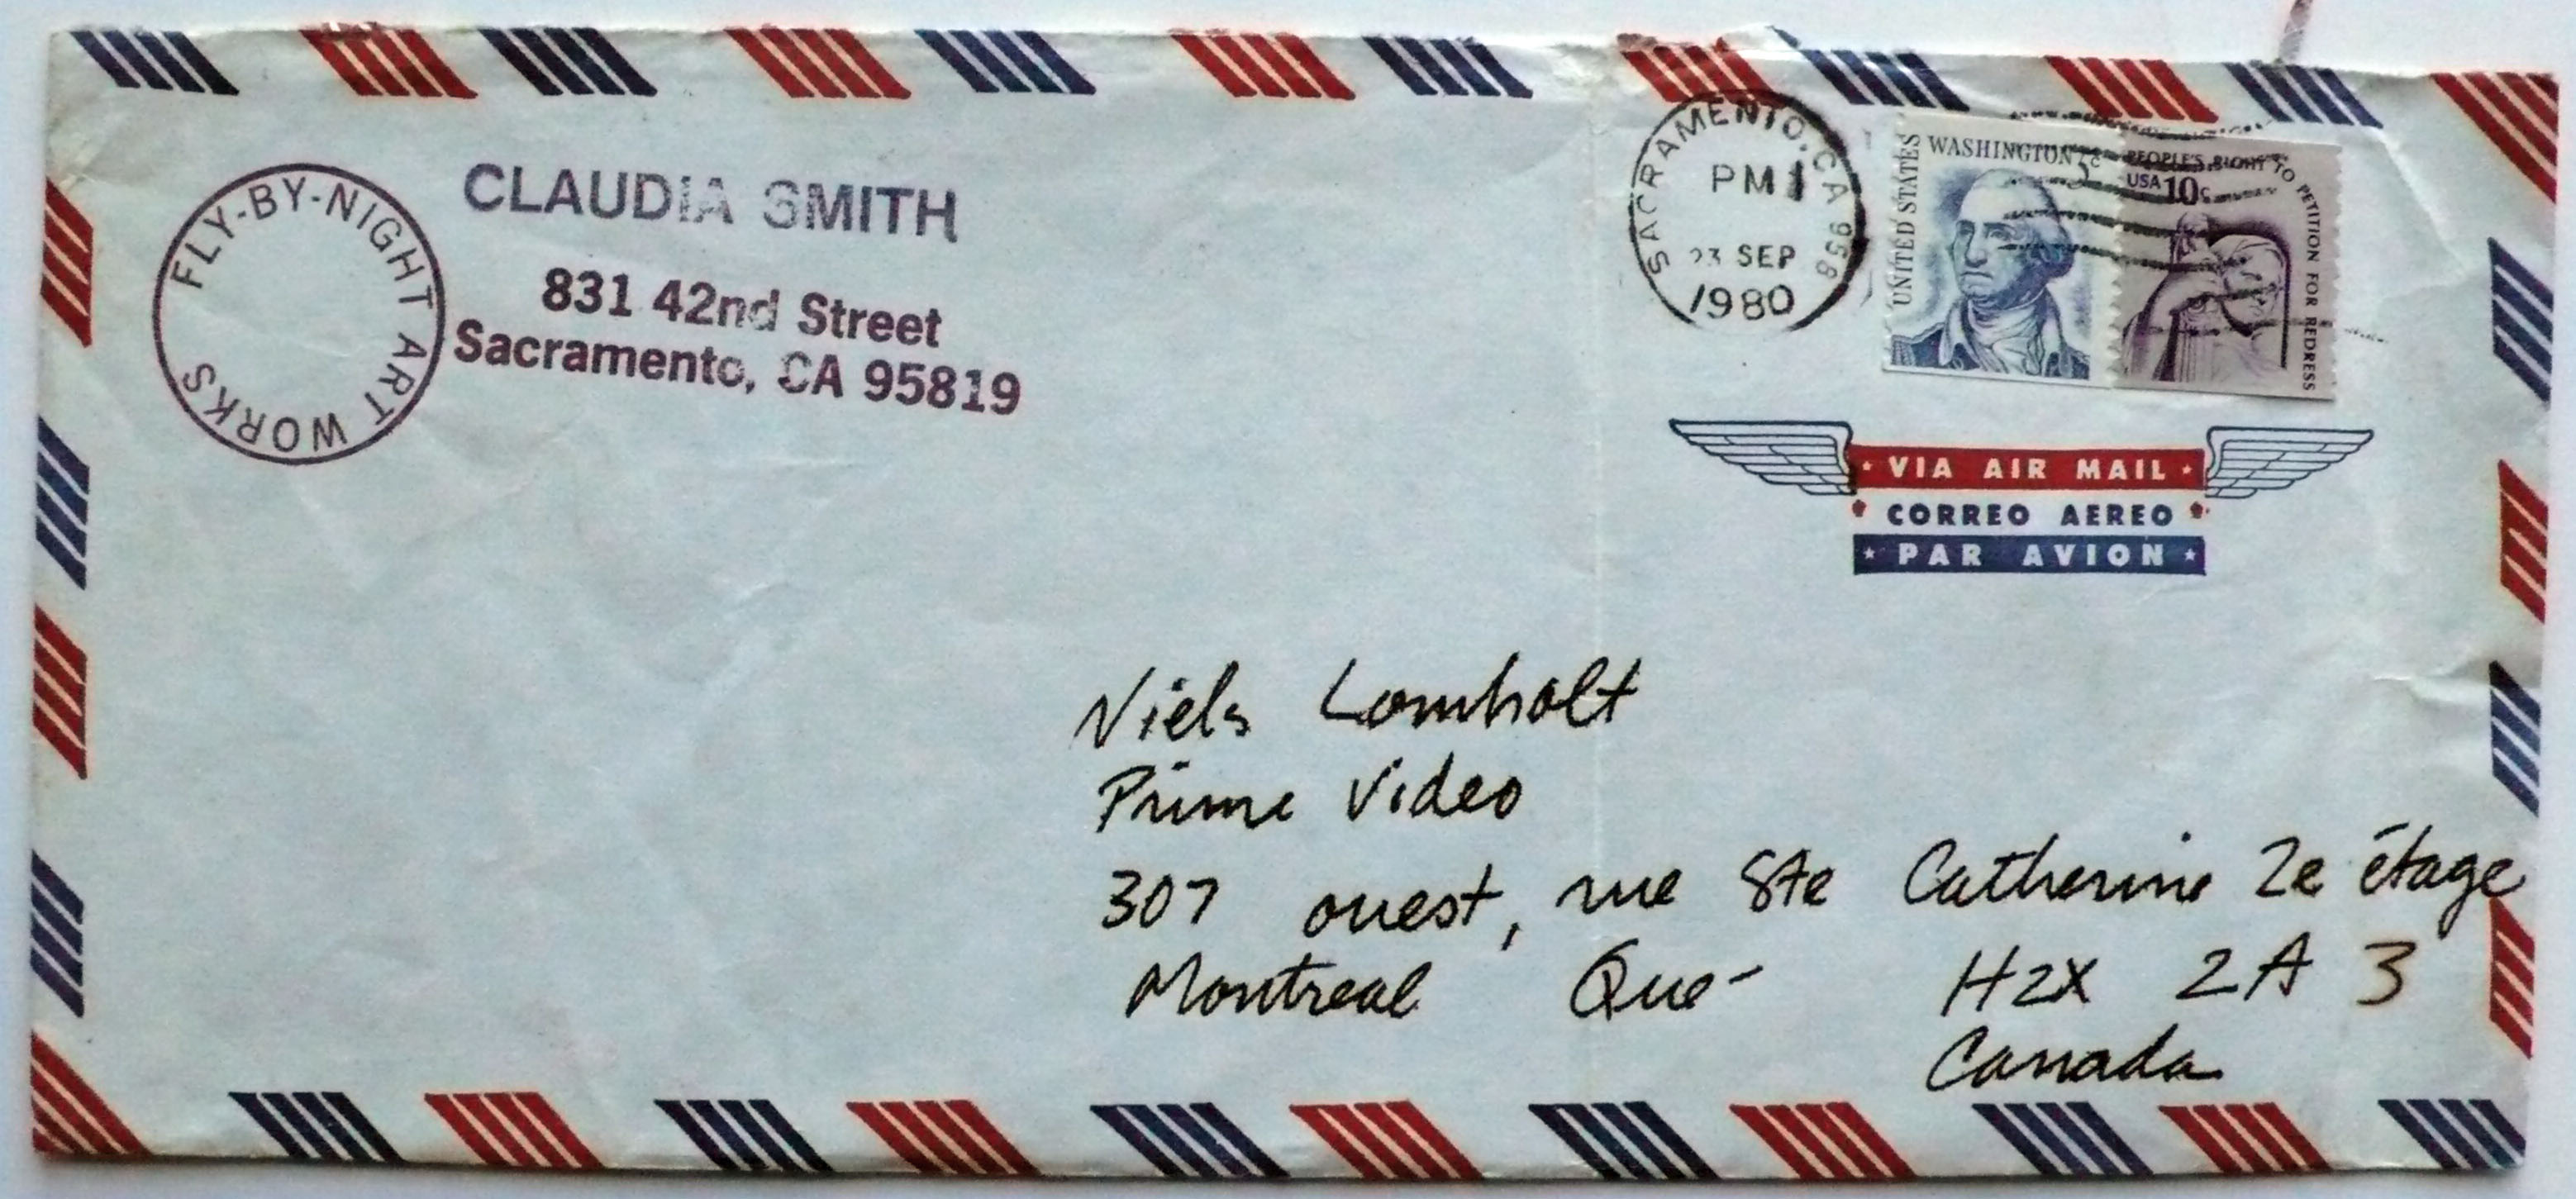 FLY-BY-NIGHT ART WORKS
CLAUDIA SMITH
831 42nd Street
Sacramento, CA 95819
SACRAMENTO, CA 958
PM
23 SEP
1980
UNITED STATES
WASHINGTON 5c
PEOPLE'S RIGHT TO PETITION FOR REDRESS
USA 10c
VIA AIR MAIL
CORREO AEREO
PAR AVION
Niels Lomholt
Prime Video
307 ouest, rue Ste Catherine 2e étage
Montreal Que- H2X 2A3
Canada